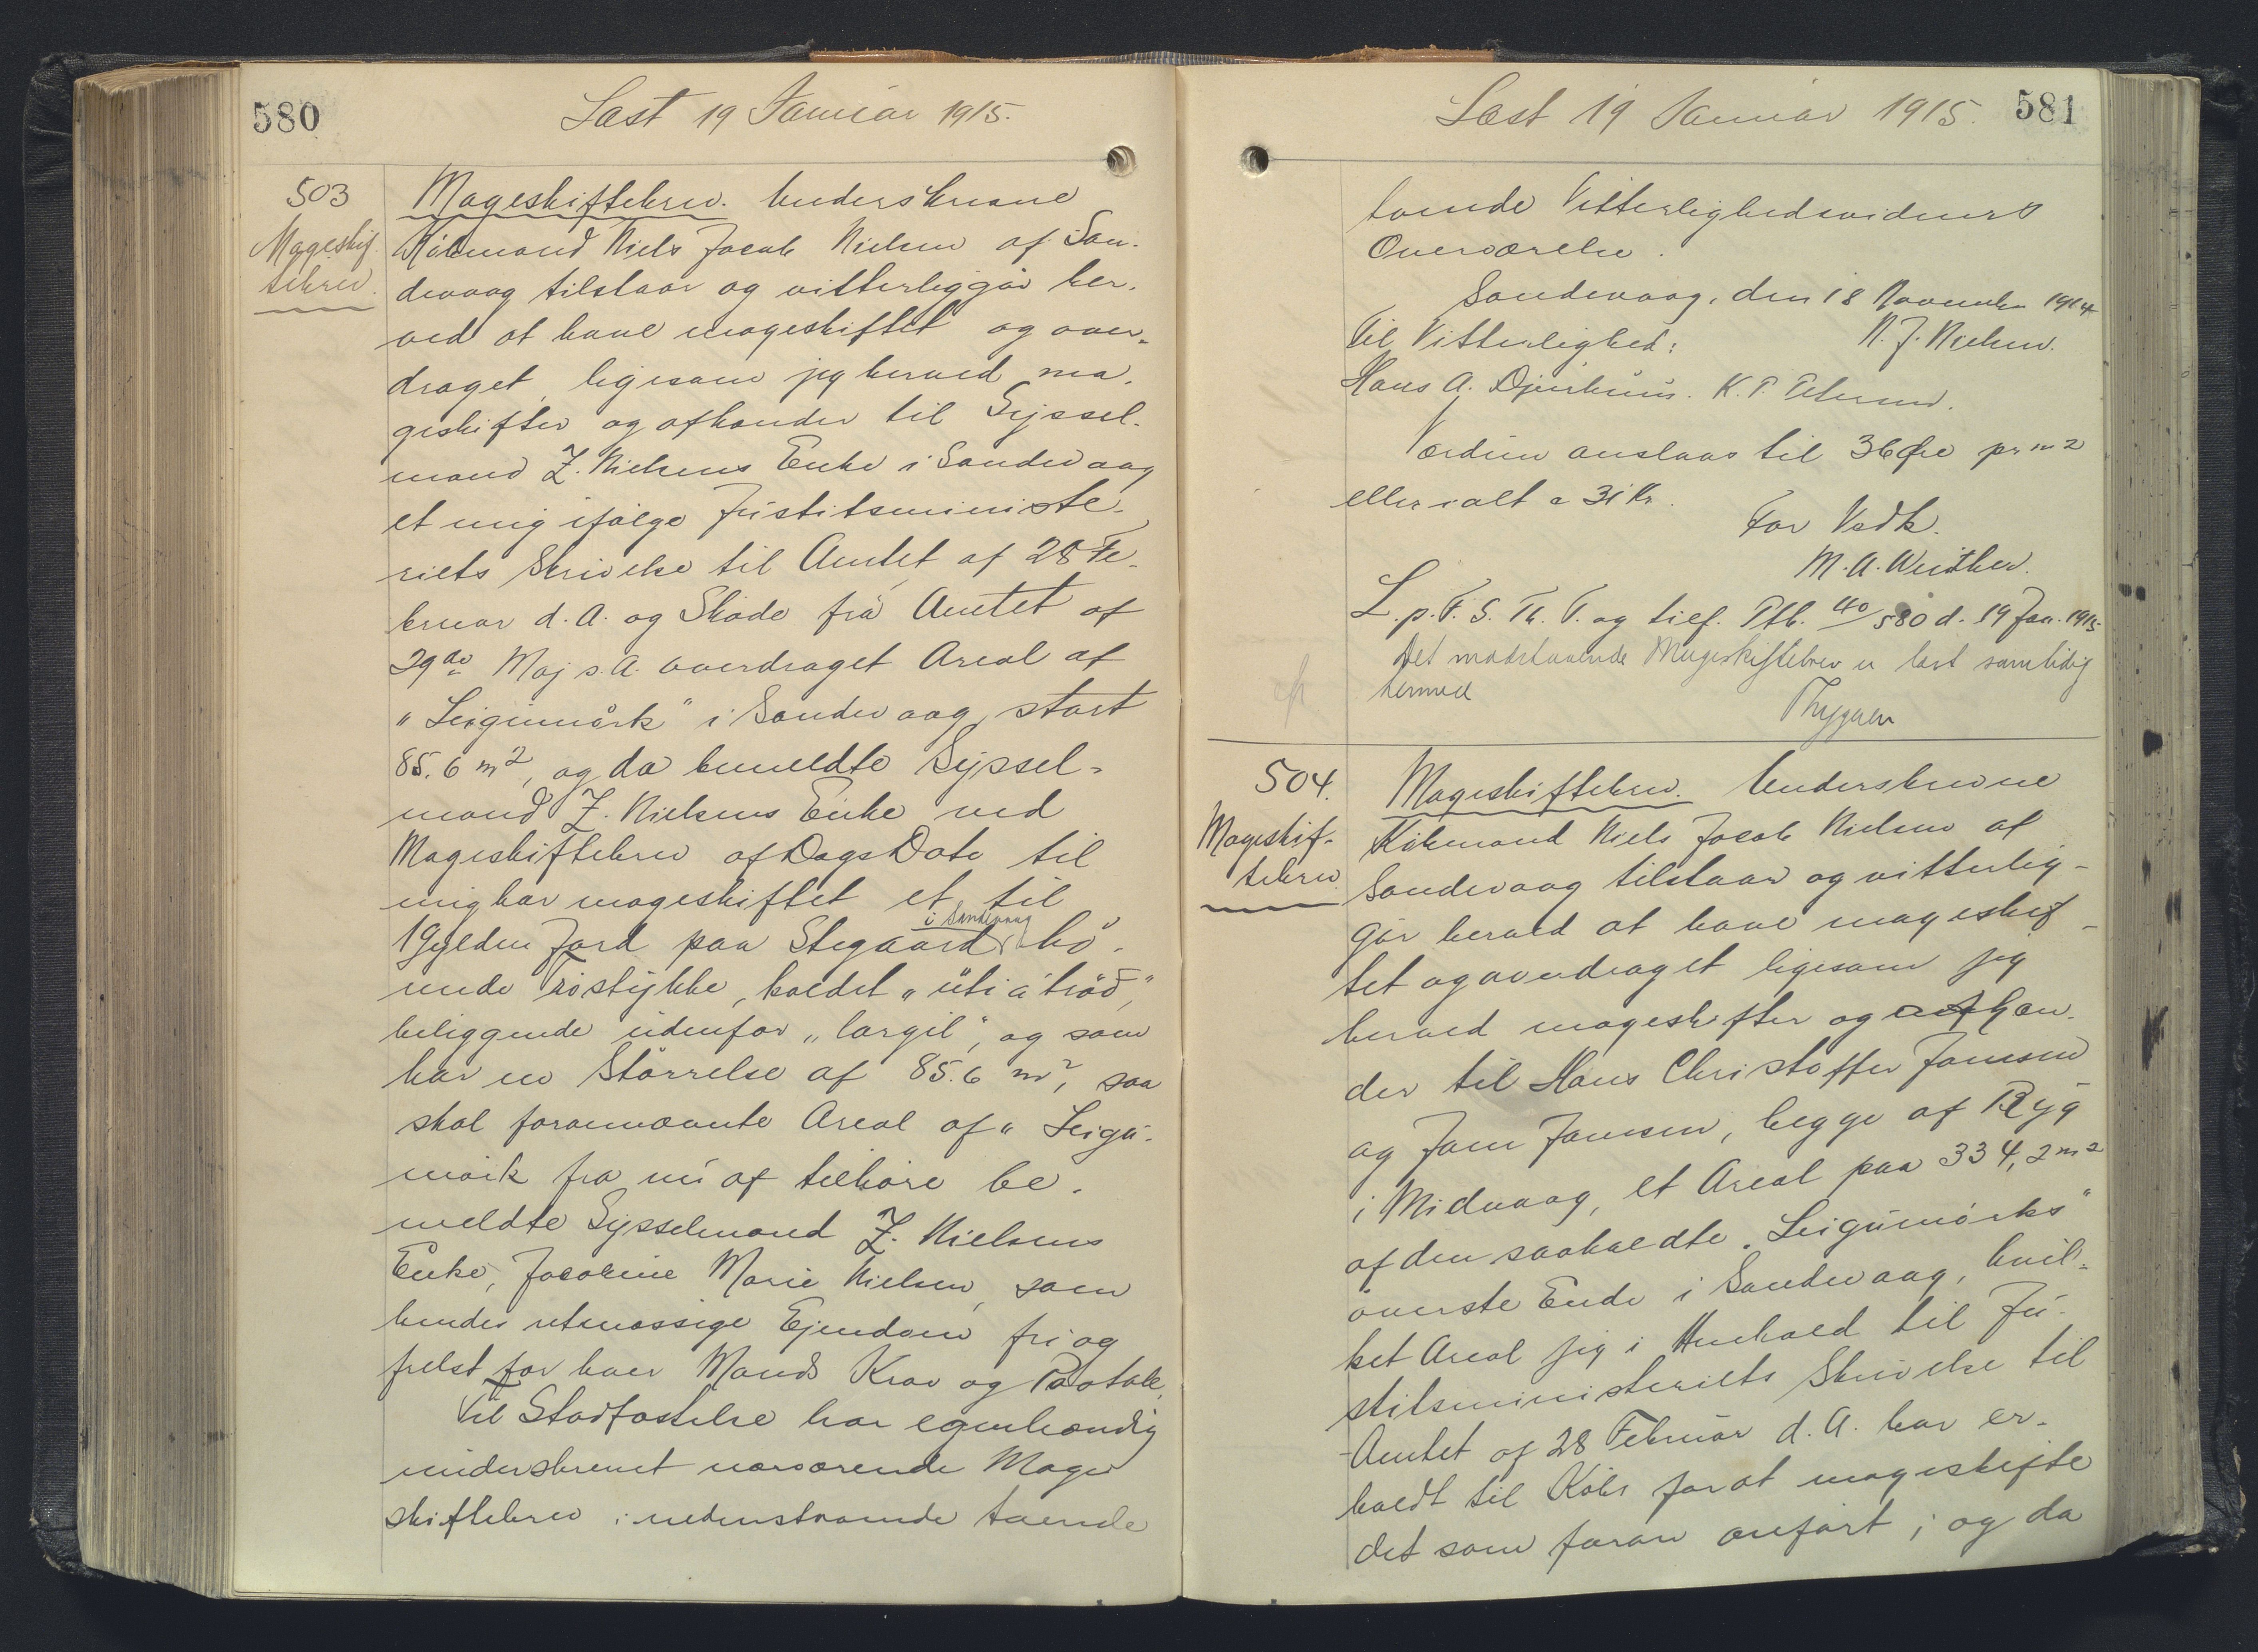 580
Læst 19 Januar 1915.
503
Mageskif-
tebrev.
Mageskiftebrev. Underskrevne
Købmand Niels Jacob Nielsen af San-
devaag tilstaar og vitterliggør her-
ved at have mageskiftet og over-
draget, ligesom jeg herved ma-
geskifter og afhænder til Syssel-
mand Z. Nielsens Enke i Sandevaag
et mig ifølge Justitsministe-
riets Skrivelse til Amtet af 28 Fe-
bruar d. A. og Skøde fra Amtet af
29de Maj s. A. overdraget Areal af
"Leigumørk" i Sandevaag, stort
85.6 m², og da bemeldte Syssel-
mand Z. Nielsens Enke ved
Mageskiftebrev af Dags Dato til
mig har mageskiftet et til
1 Gylden Jord paa Stegaard i Sandevaag hø-
rende Trøstykke, kaldet "úti á trøð",
beliggende udenfor "largil", og som
har en Størrelse af 85.6 m², saa
skal forannævnte Areal af "Leigu-
mørk fra nu af tilhøre be-
meldte Sysselmand Z. Nielsens
Enke, Jacobine Marie Nielsen, som
hendes retmæssige Ejendom fri og
frelst for hver Mands Krav og Paatale.
Til Stadfæstelse har egenhændig
underskrevet nærværende Mage-
skiftebrev i nedenstaaende tvende
Læst 19 Januar 1915.
581
tvende Vitterlighedsvidners
Overværelse.
Sandevaag, den 18 November 1914
Til Vitterlighed: N. J. Nielsen.
Hans A. Djurhuus. K. P. Petersen.
Værdien anslaas til 36 Øre pr m²
eller ialt c 31 Kr.
For Vedk.
M. A. Winther.
L. p. F. S. Th. T. og tilf. Ptb. 40/580 d. 19 Jan. 1915
Det modstaaende Mageskiftebrev er læst samtidig
hermed
Thygesen
504.
Mageskif-
tebrev
Mageskiftebrev. Underskrevne
Købmand Niels Jacob Nielsen af
Sandevaag tilstaar og vitterlig-
gør herved at have mageskif-
tet og overdraget ligesom jeg
herved mageskifter og afhæn-
der til Hans Christoffer Jansen
og Jens Jansen, begge af Ryg
i Midvaag, et Areal paa 334,2 m²
af den saakaldte "Leigumørks"
øverste Ende i Sandevaag, hvil-
ket Areal jeg i Henhold til Ju-
stitsministeriets Skrivelse til
Amtet af 28 Februar d. A. har er-
holdt til Købs for at mageskifte
det som foran anført; og da